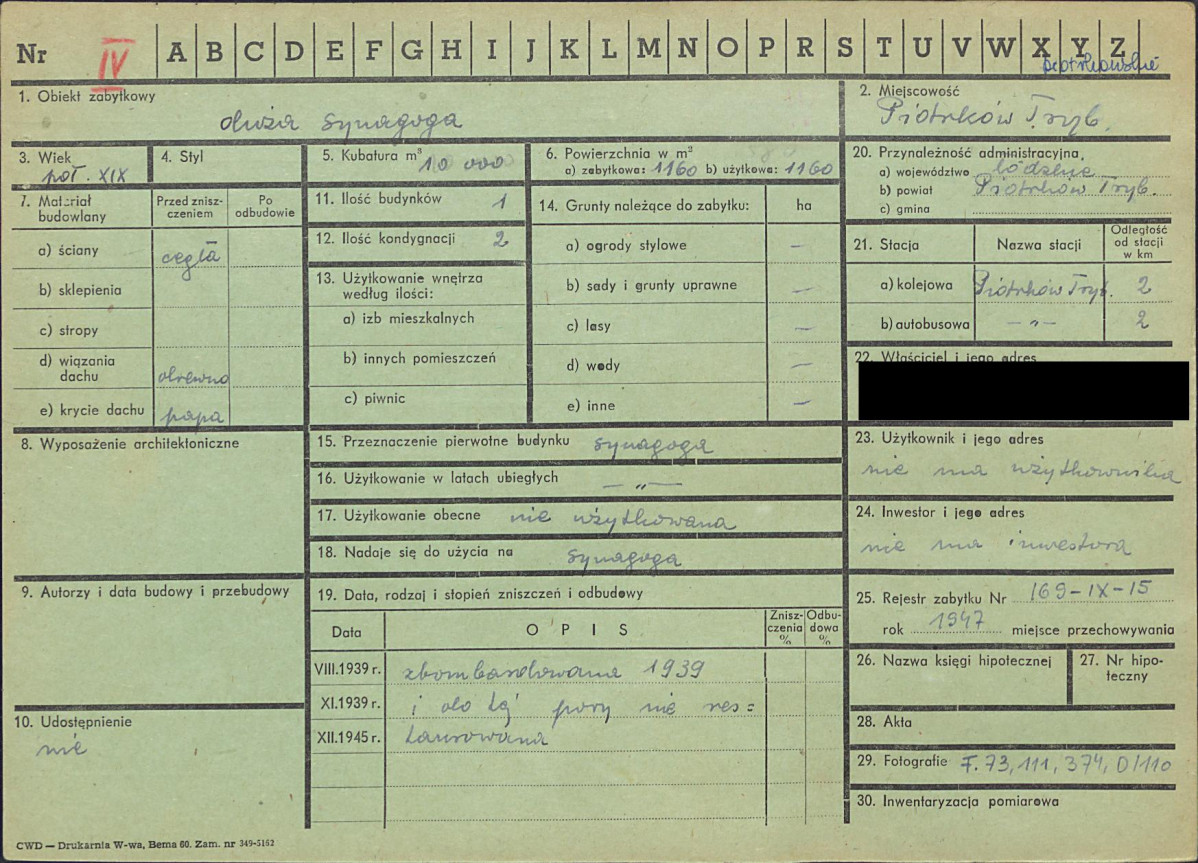 Nr IV A B C D E F G H I J K L M N O P R S T U V W X Y Z
piotrkowskie
1. Obiekt zabytkowy
duża synagoga
2. Miejscowość
Piotrków Tryb.
3. Wiek
poł. XIX
4. Styl
5. Kubatura m³ 10 000
6. Powierzchnia w m²
a) zabytkowa: 1160 b) użytkowa: 1160
20. Przynależność administracyjna,
a) województwo łódzkie
b) powiat Piotrków Tryb.
c) gmina
7. Materiał budowlany
Przed zniszczeniem
Po odbudowie
a) ściany cegła
b) sklepienia
c) stropy
d) wiązania dachu drewno
e) krycie dachu papa
11. Ilość budynków 1
12. Ilość kondygnacji 2
13. Użytkowanie wnętrza
według ilości:
a) izb mieszkalnych
b) innych pomieszczeń
c) piwnic
14. Grunty należące do zabytku: ha
a) ogrody stylowe —
b) sady i grunty uprawne —
c) lasy —
d) wody —
e) inne —
21. Stacja Nazwa stacji Odległość od stacji w km
a) kolejowa Piotrków Tryb. 2
b) autobusowa — „ — 2
22. Właściciel i jego adres
8. Wyposażenie architektoniczne
15. Przeznaczenie pierwotne budynku synagoga
16. Użytkowanie w latach ubiegłych — „ —
17. Użytkowanie obecne nie użytkowana
18. Nadaje się do użycia na synagoga
23. Użytkownik i jego adres
nie ma użytkownika
24. Inwestor i jego adres
nie ma inwestora
9. Autorzy i data budowy i przebudowy
19. Data, rodzaj i stopień zniszczeń i odbudowy
Data OPIS Zniszczenia % Odbudowa %
VIII.1939 r. zbombardowana 1939
XI.1939 r. i do tej pory nie res=
XII.1945 r. taurowana
25. Rejestr zabytku Nr 169-IX-15
rok 1947 miejsce przechowywania
26. Nazwa księgi hipotecznej
27. Nr hipoteczny
10. Udostępnienie
nie
28. Akta
29. Fotografie F. 73, 111, 374, D/110
30. Inwentaryzacja pomiarowa
CWD — Drukarnia W-wa, Bema 60. Zam. nr 349-5162